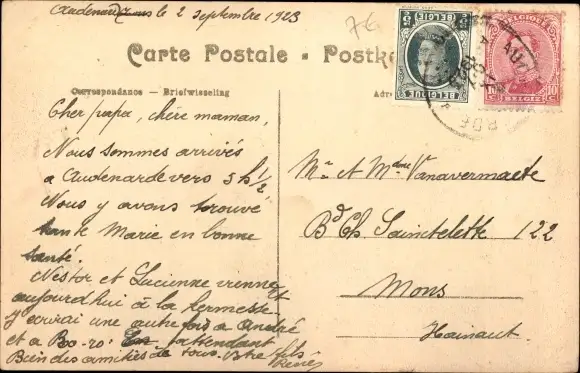 Audenarde le 2 septembre 1923
76
Carte Postale - Postk
Correspondance - Briefwisseling
Adr
BELGIQUE
BELGIE
5 c
BELGIQUE
BELGIË
10 c 10 c
Cher papa, chère maman,
Nous sommes arrivés
a Audenarde vers 5 h 1/2
Nous y avons trouvé
tante Marie en bonne
santé.
Nestor et Lucienne viennent
aujourdhui à la kermesse.
J'écrirai une autre fois a André
et a Bo-ro. En attendant
Bien des amitiés de tous. Votre fils
René
Mr et Mdme Vanavermaete
Bd Ch. Sainctelette 122
Mons
Hainaut.